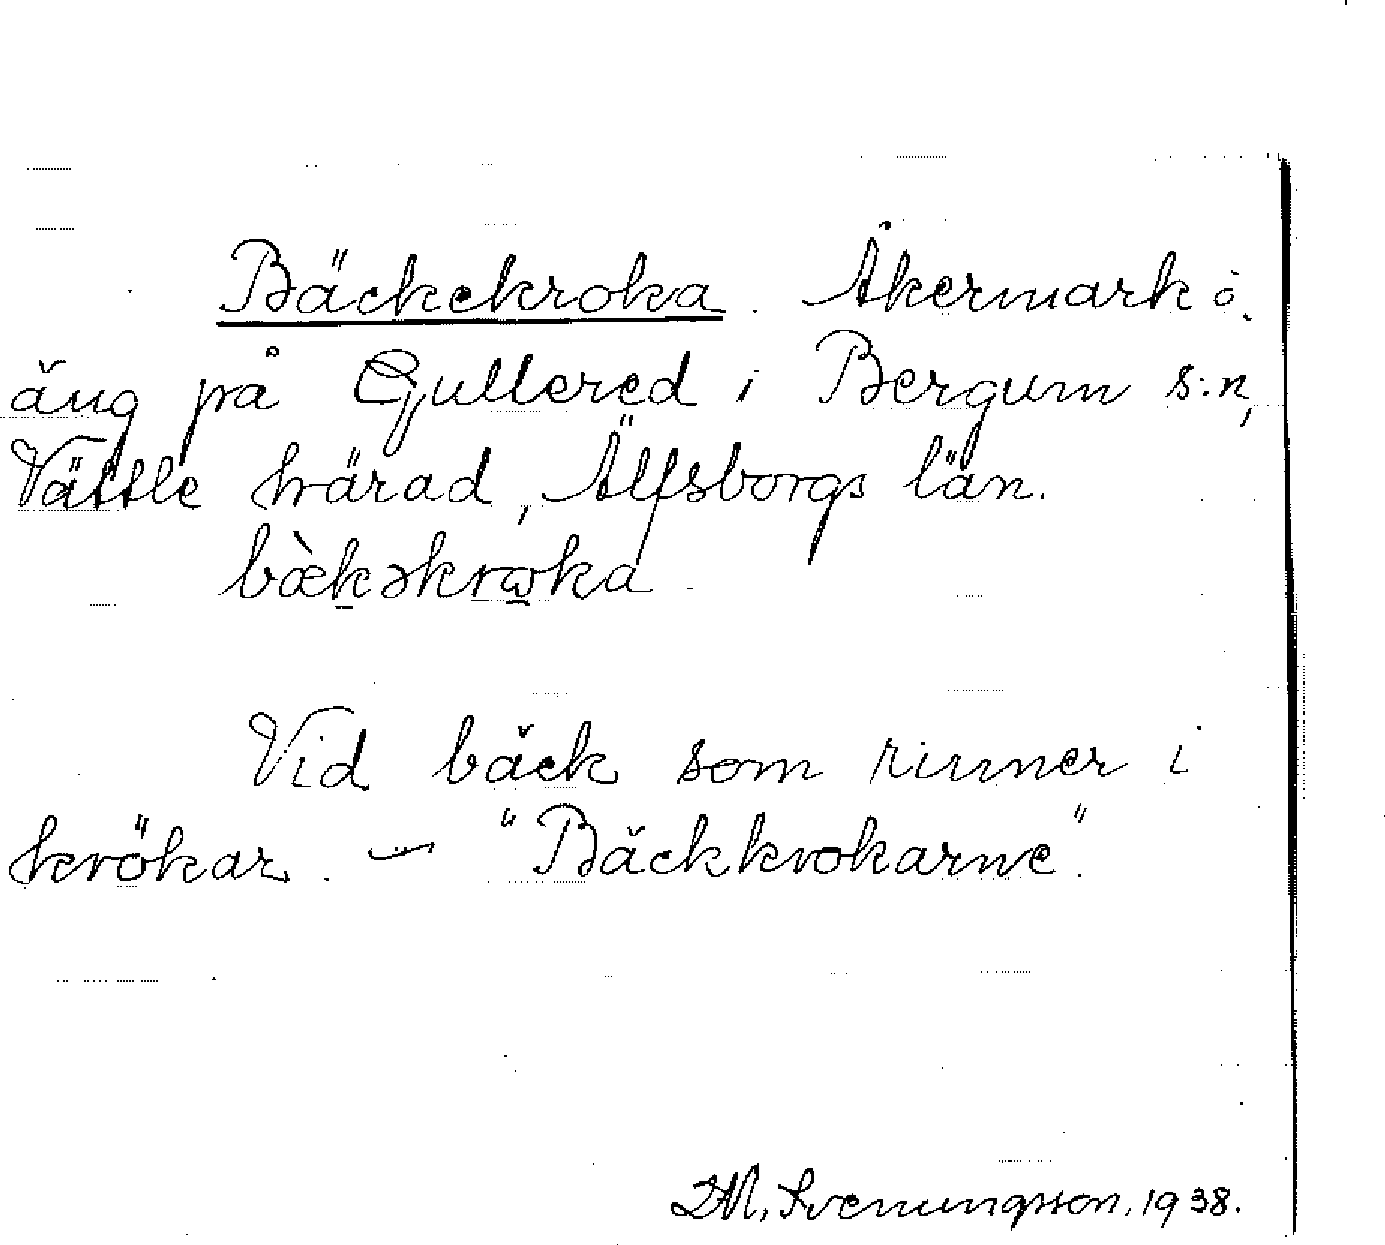 Bäckekroka. Åkermark o.
äng på Gullered i Bergum s:n,
Vättle härad, Älfsborgs län.
bæ̀kəkrωka
Vid bäck som rinner i
krökar. — "Bäckkrokarne".
Svenungsson, 1938.